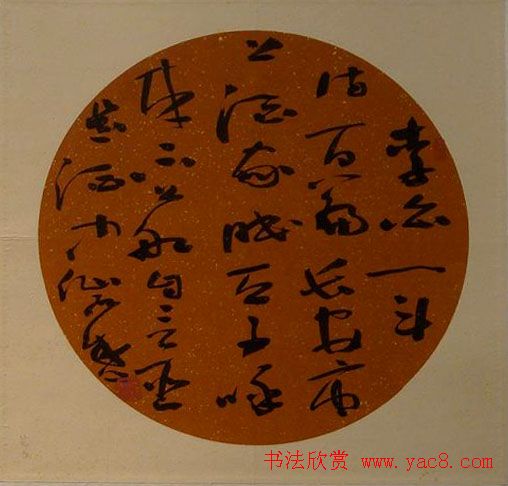 李白一斗
詩百篇長安市
上酒家眠天子呼
來不上船自言臣
是酒中仙
书法欣赏 www.yac8.com